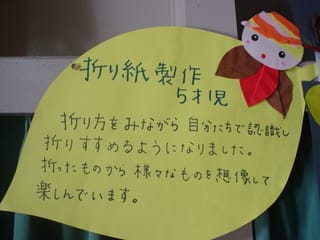 折り紙製作
5才児
折り方をみながら 自分たちで認識し
折りすすめるようになりました。
折ったものから 様々なものを想像して
楽しんでいます。